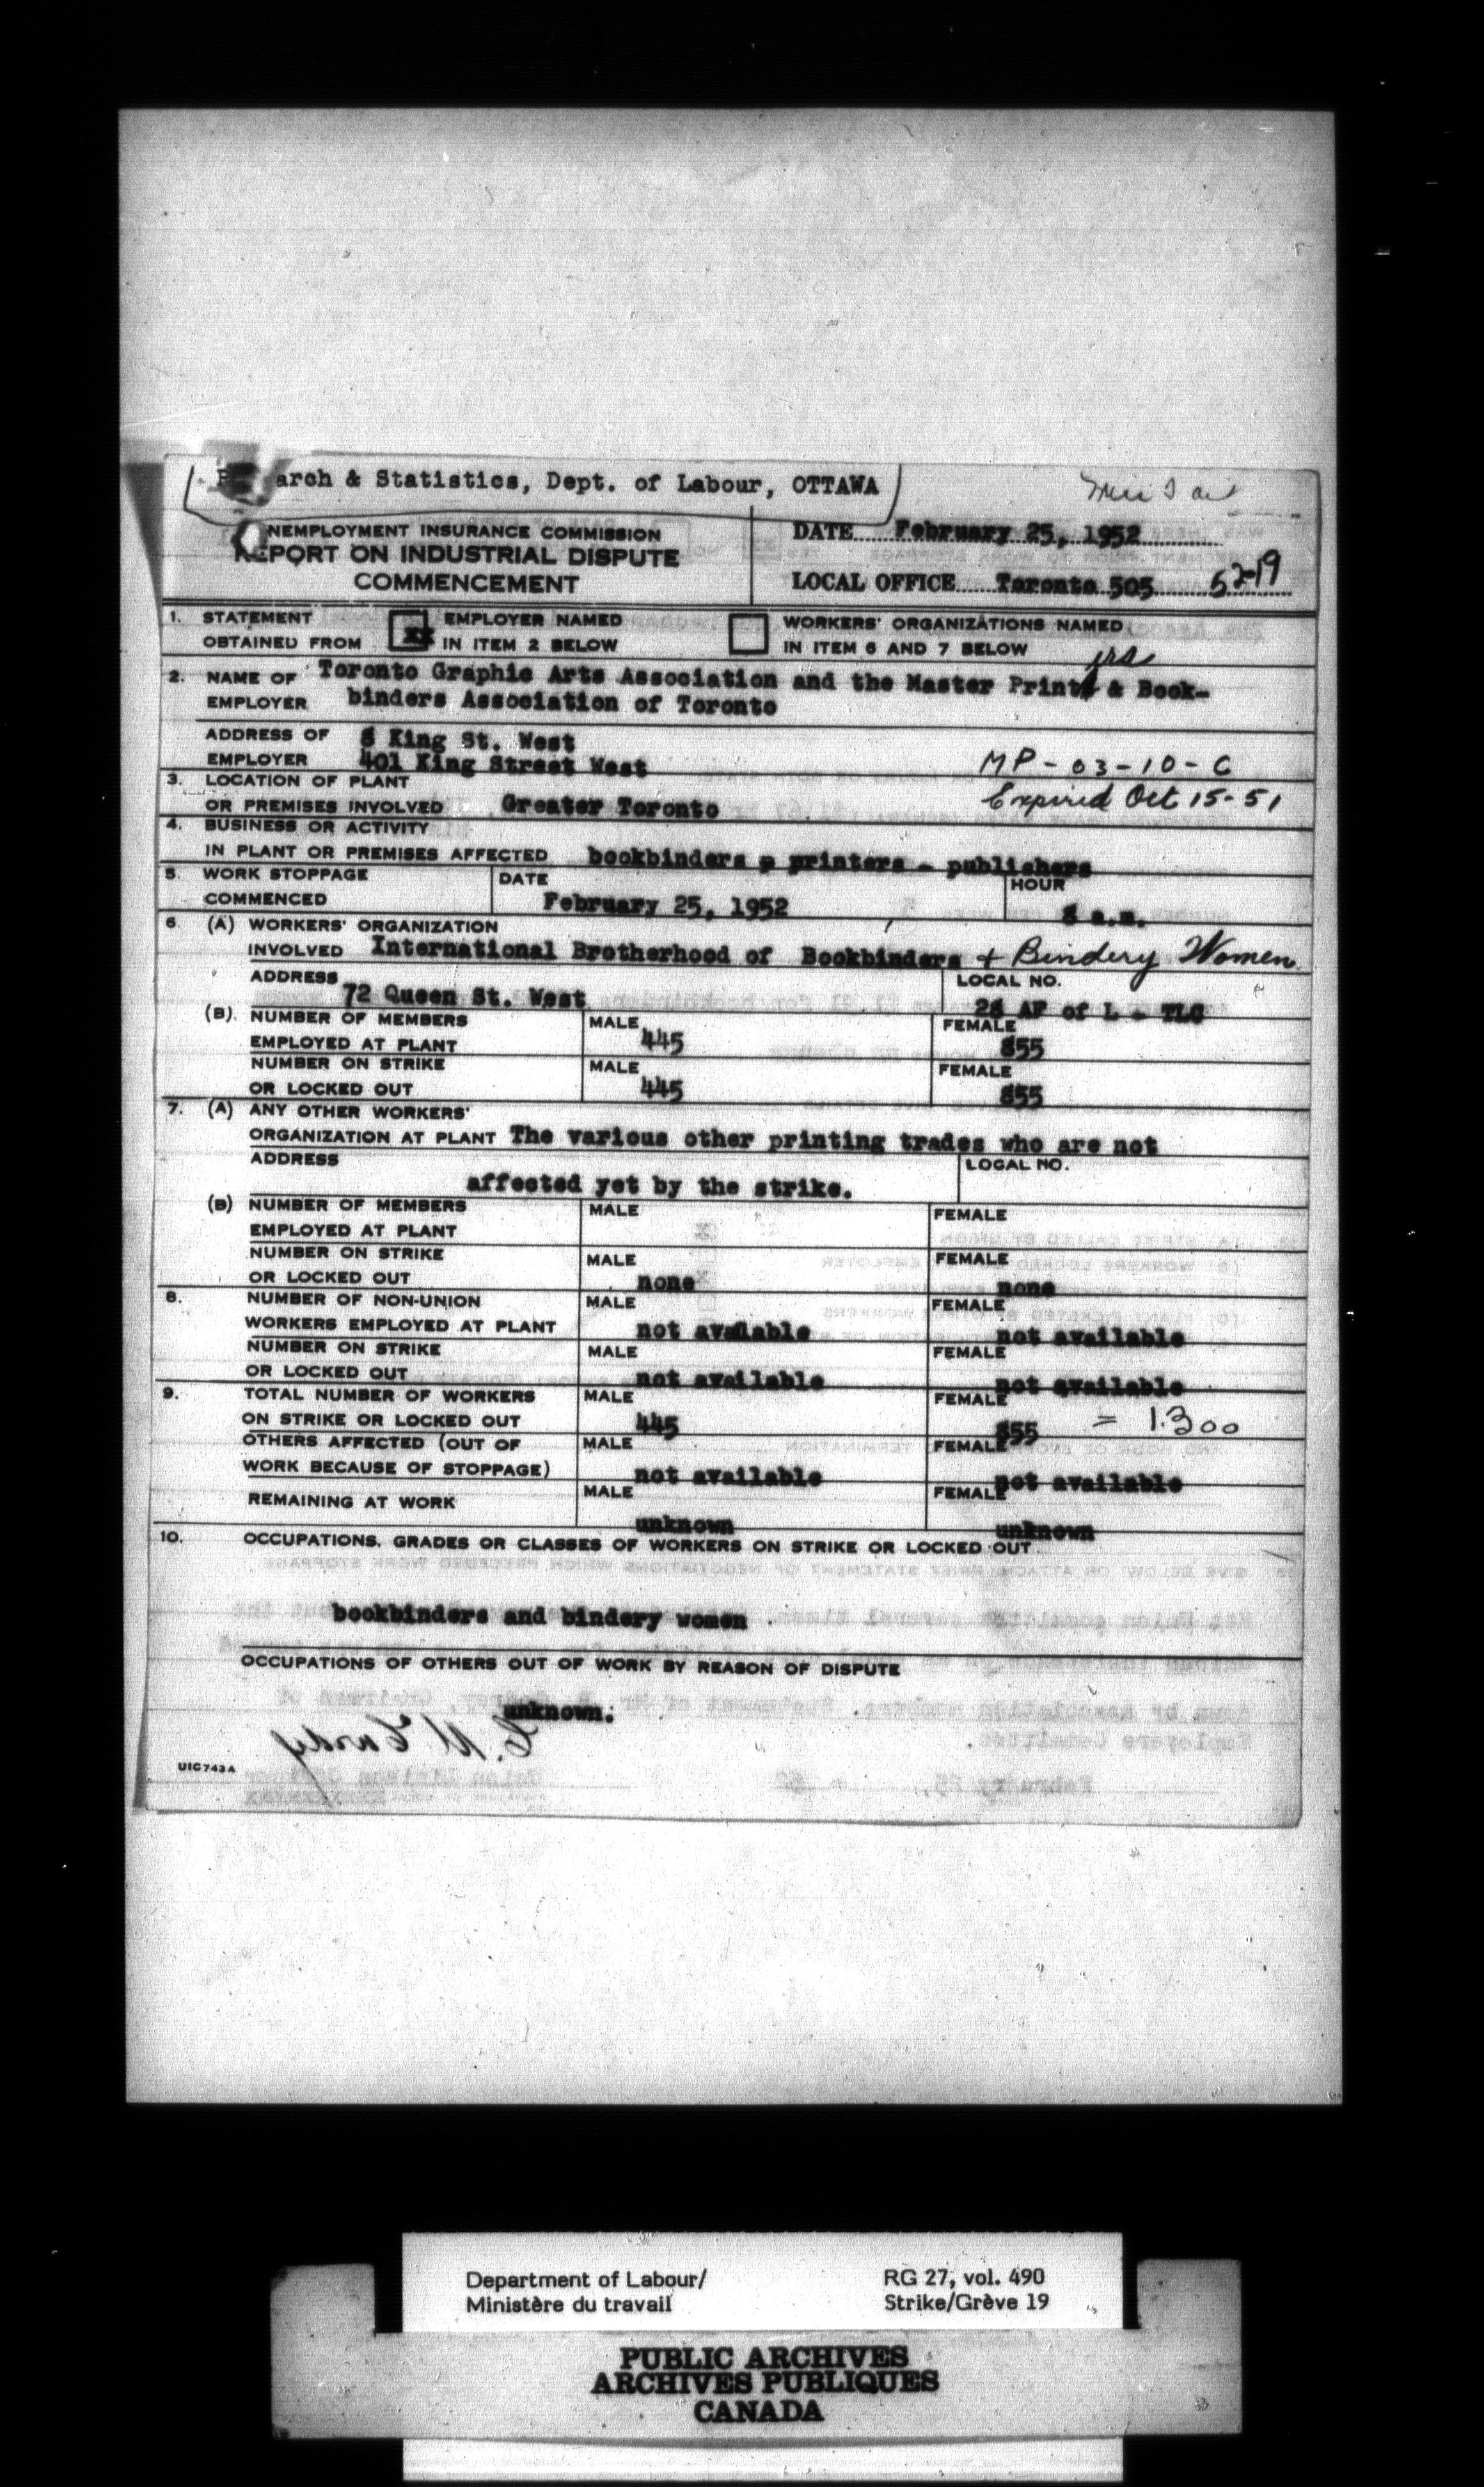 & Statistics, Dept. of Labour, OTTAWA
NEMPLOYMENT INSURANCE COMMISSION
REPORT ON INDUSTRIAL DISPUTE
COMMENCEMENT
DATE February 25, 1952
LOCAL OFFICE Toronto 505 52-19
1. STATEMENT OBTAINED FROM
x EMPLOYER NAMED IN ITEM 2 BELOW
WORKERS' ORGANIZATIONS NAMED IN ITEM 6 AND 7 BELOW
2. NAME OF EMPLOYER Toronto Graphic Arts Association and the Master Printers & Book-
binders Association of Toronto
ADDRESS OF EMPLOYER 8 King St. West
401 King Street West
MP-03-10-C
3. LOCATION OF PLANT
OR PREMISES INVOLVED Greater Toronto
Expired Oct 15-51
4. BUSINESS OR ACTIVITY
IN PLANT OR PREMISES AFFECTED bookbinders - printers - publishers
5. WORK STOPPAGE COMMENCED
DATE February 25, 1952
HOUR 8 a.m.
6 (A) WORKERS' ORGANIZATION
INVOLVED International Brotherhood of Bookbinders + Bindery Women
ADDRESS 72 Queen St. West
LOCAL NO. 28 AF of L - TLC
(B) NUMBER OF MEMBERS EMPLOYED AT PLANT
MALE 445
FEMALE 855
NUMBER ON STRIKE OR LOCKED OUT
MALE 445
FEMALE 855
7. (A) ANY OTHER WORKERS'
ORGANIZATION AT PLANT The various other printing trades who are not
ADDRESS affected yet by the strike.
LOCAL NO.
(B) NUMBER OF MEMBERS EMPLOYED AT PLANT
MALE
FEMALE
NUMBER ON STRIKE OR LOCKED OUT
MALE none
FEMALE none
8. NUMBER OF NON-UNION WORKERS EMPLOYED AT PLANT
MALE not available
FEMALE not available
NUMBER ON STRIKE OR LOCKED OUT
MALE not available
FEMALE not available
9. TOTAL NUMBER OF WORKERS ON STRIKE OR LOCKED OUT
MALE 445
FEMALE 855 = 1300
OTHERS AFFECTED (OUT OF WORK BECAUSE OF STOPPAGE)
MALE not available
FEMALE not available
REMAINING AT WORK
MALE unknown
FEMALE unknown
10. OCCUPATIONS, GRADES OR CLASSES OF WORKERS ON STRIKE OR LOCKED OUT
bookbinders and bindery women
OCCUPATIONS OF OTHERS OUT OF WORK BY REASON OF DISPUTE
unknown.
UIC 743A
Department of Labour/
Ministère du travail
RG 27, vol. 490
Strike/Grève 19
PUBLIC ARCHIVES
ARCHIVES PUBLIQUES
CANADA